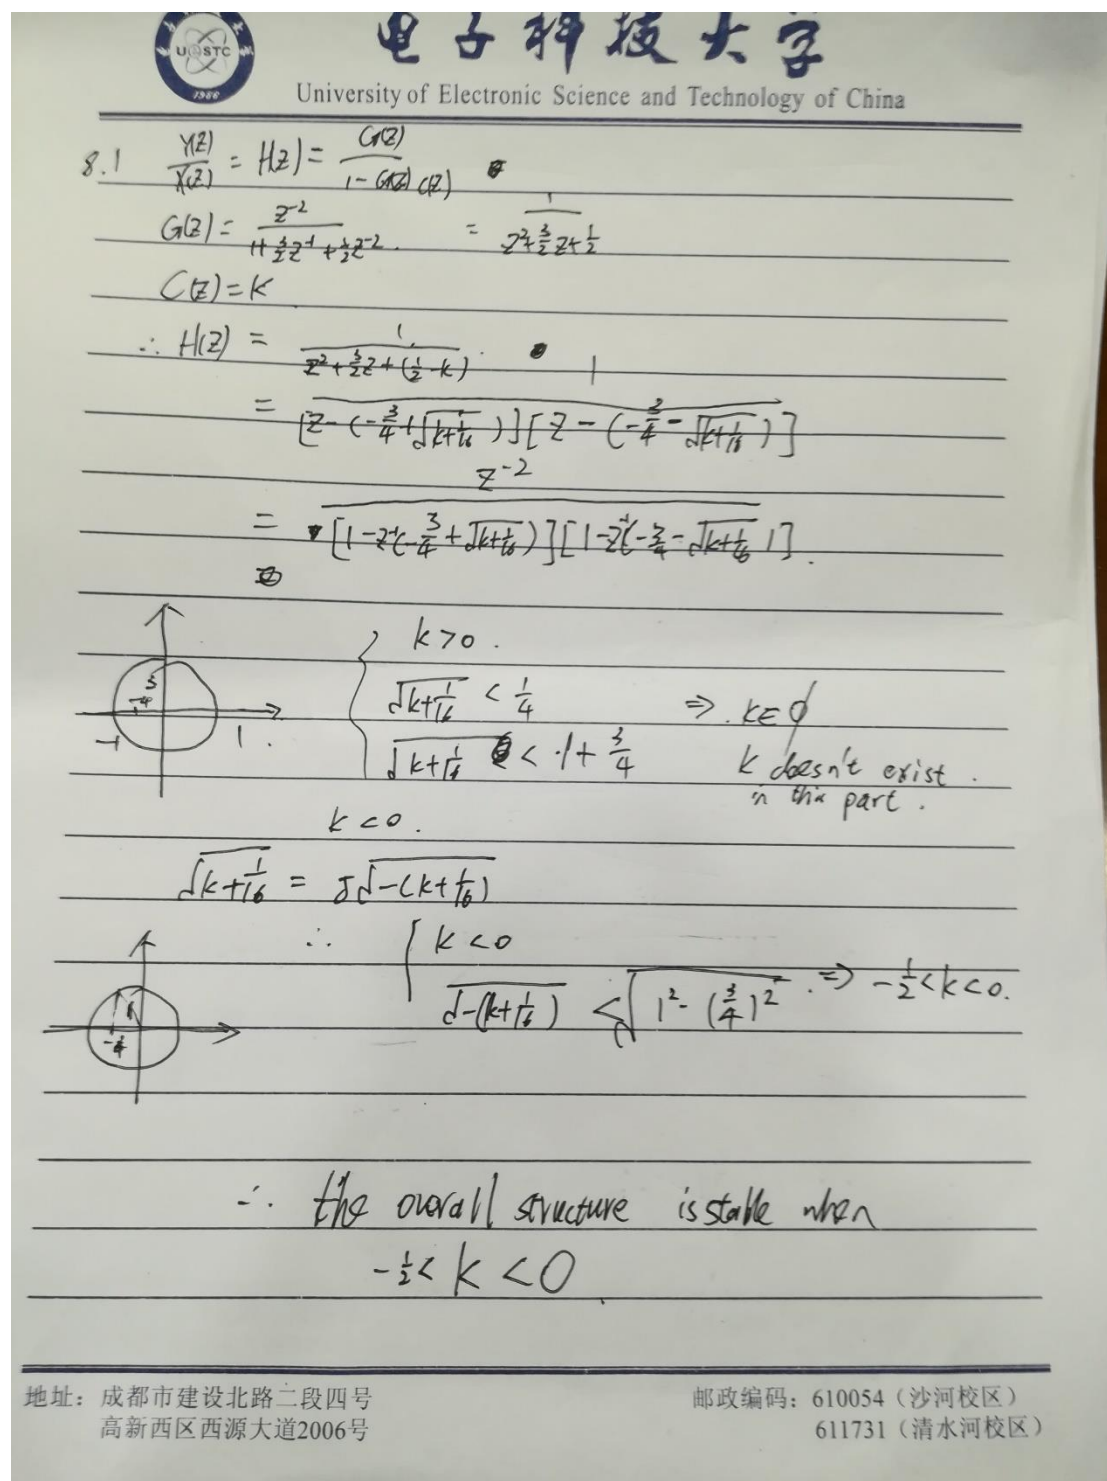 电子科技大学
UESTC
1956
University of Electronic Science and Technology of China
8.1 Y(z)/X(z) = H(z) = G(z)/(1-G(z)C(z))
G(z) = z^-2/(1+3/2z^-1+1/2z^-2) = 1/(z^2+3/2z+1/2)
C(z)=K
∴ H(z) = 1/(z^2+3/2z+(1/2-k))
= 1/([z-(-3/4+√(k+1/16))][z-(-3/4-√(k+1/16))])
= z^-2/([1-z^-1(-3/4+√(k+1/16))][1-z^-1(-3/4-√(k+1/16))]).
k>0.
√(k+1/16) < 1/4 ⇒ k∈∅
√(k+1/16) < -1+3/4 k doesn't exist.
in this part.
-3/4
-1 1
k<0.
√(k+1/16) = j√(-(k+1/16))
∴ k<0
√(-(k+1/16)) < √(1^2-(3/4)^2) ⇒ -1/2<k<0.
∴ the overall structure is stable when
-1/2< k <0
地址：成都市建设北路二段四号 邮政编码：610054（沙河校区）
高新西区西源大道2006号 611731（清水河校区）